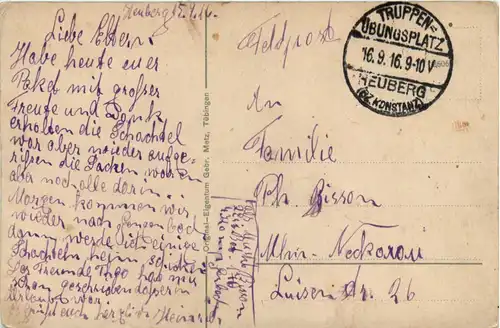 Heuberg 15.9.16.
Liebe Eltern.
Habe heute euer
Paket mit großer
Freude und Dank
erhalten die Schachtel
war aber wieder aufge-
rissen die Sachen waren
aber noch alle darin.
Morgen kommen wir
wieder nach
dann werde ich einige
Schachteln heim schicken
Der Freund hat mir
schon geschrieben daß er in
Urlaub war.
herzlich
Original-Eigentum Gebr. Metz, Tübingen
TRUPPEN-
ÜBUNGSPLATZ
16.9.16.9-10V
HEUBERG
(BZ. KONSTANZ)
Feldpost
An
Familie
Ph. Bisson
Mhm-Neckarau
Luisen Str. 26